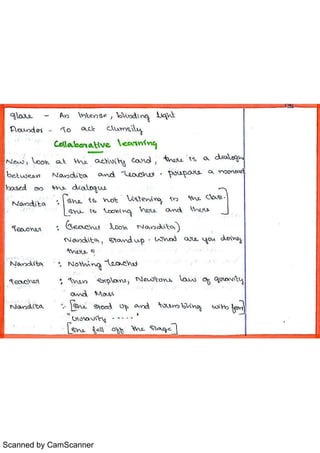 glare - An Intense, blinding light
Flounder - To act clumsily
Collaborative learning
Now, look at the activity card, there is a dialogue
between Nandita and Teacher. prepare a
based on the dialogue
Nandita : [She is not listening to the class.
She is looking here and there]
Teacher : (Teacher look Nandita)
Nandita, stand up. What are you doing
there?
Nandita : Nothing Teacher
Teacher : Then explain, Newtons law of gravity
and Mass
Nandita :- [She stood up and trembling with fear]
"Gravity ....."
[She fell off the stage]
Scanned by CamScanner